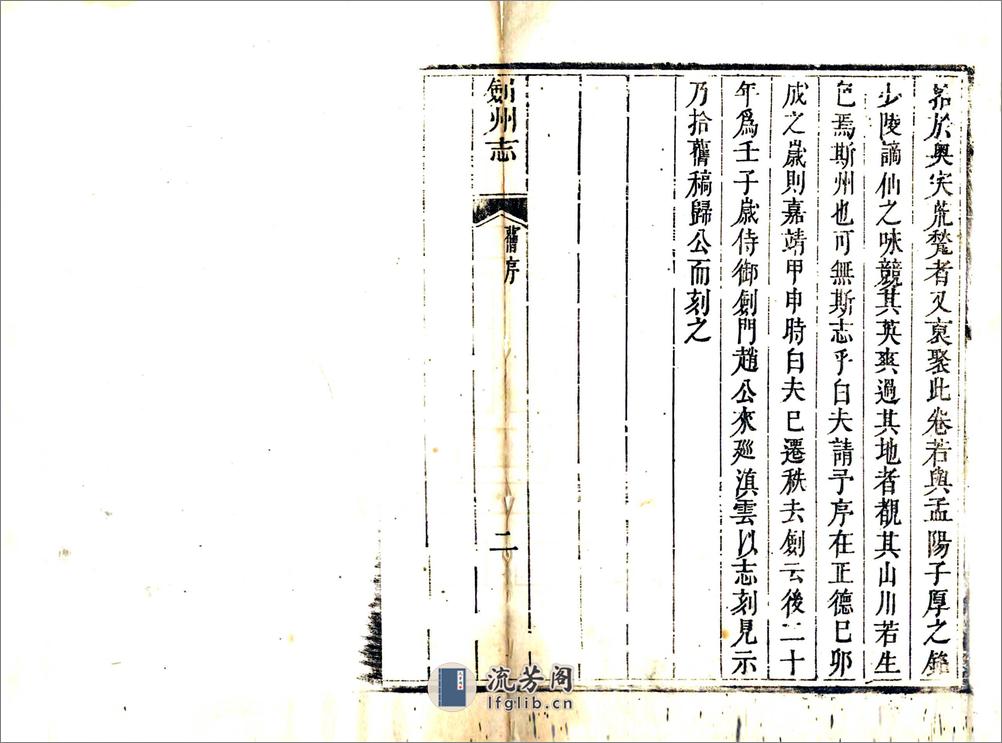 於奧宎荒甃者又裒聚此卷若與孟陽子厚之銘
少陵謫仙之咏競其英爽過其地者覩其山川若生
色焉斯州也可無斯志乎白夫請予序在正德巳卯
成之歲則嘉靖甲申時白夫巳遷秩去劍云後二十
年爲壬子歲侍御劍門趙公來廵滇雲以志刻見示
乃拾舊稿歸公而刻之
劍州志
舊序
二
流芳阁
lfglib.cn